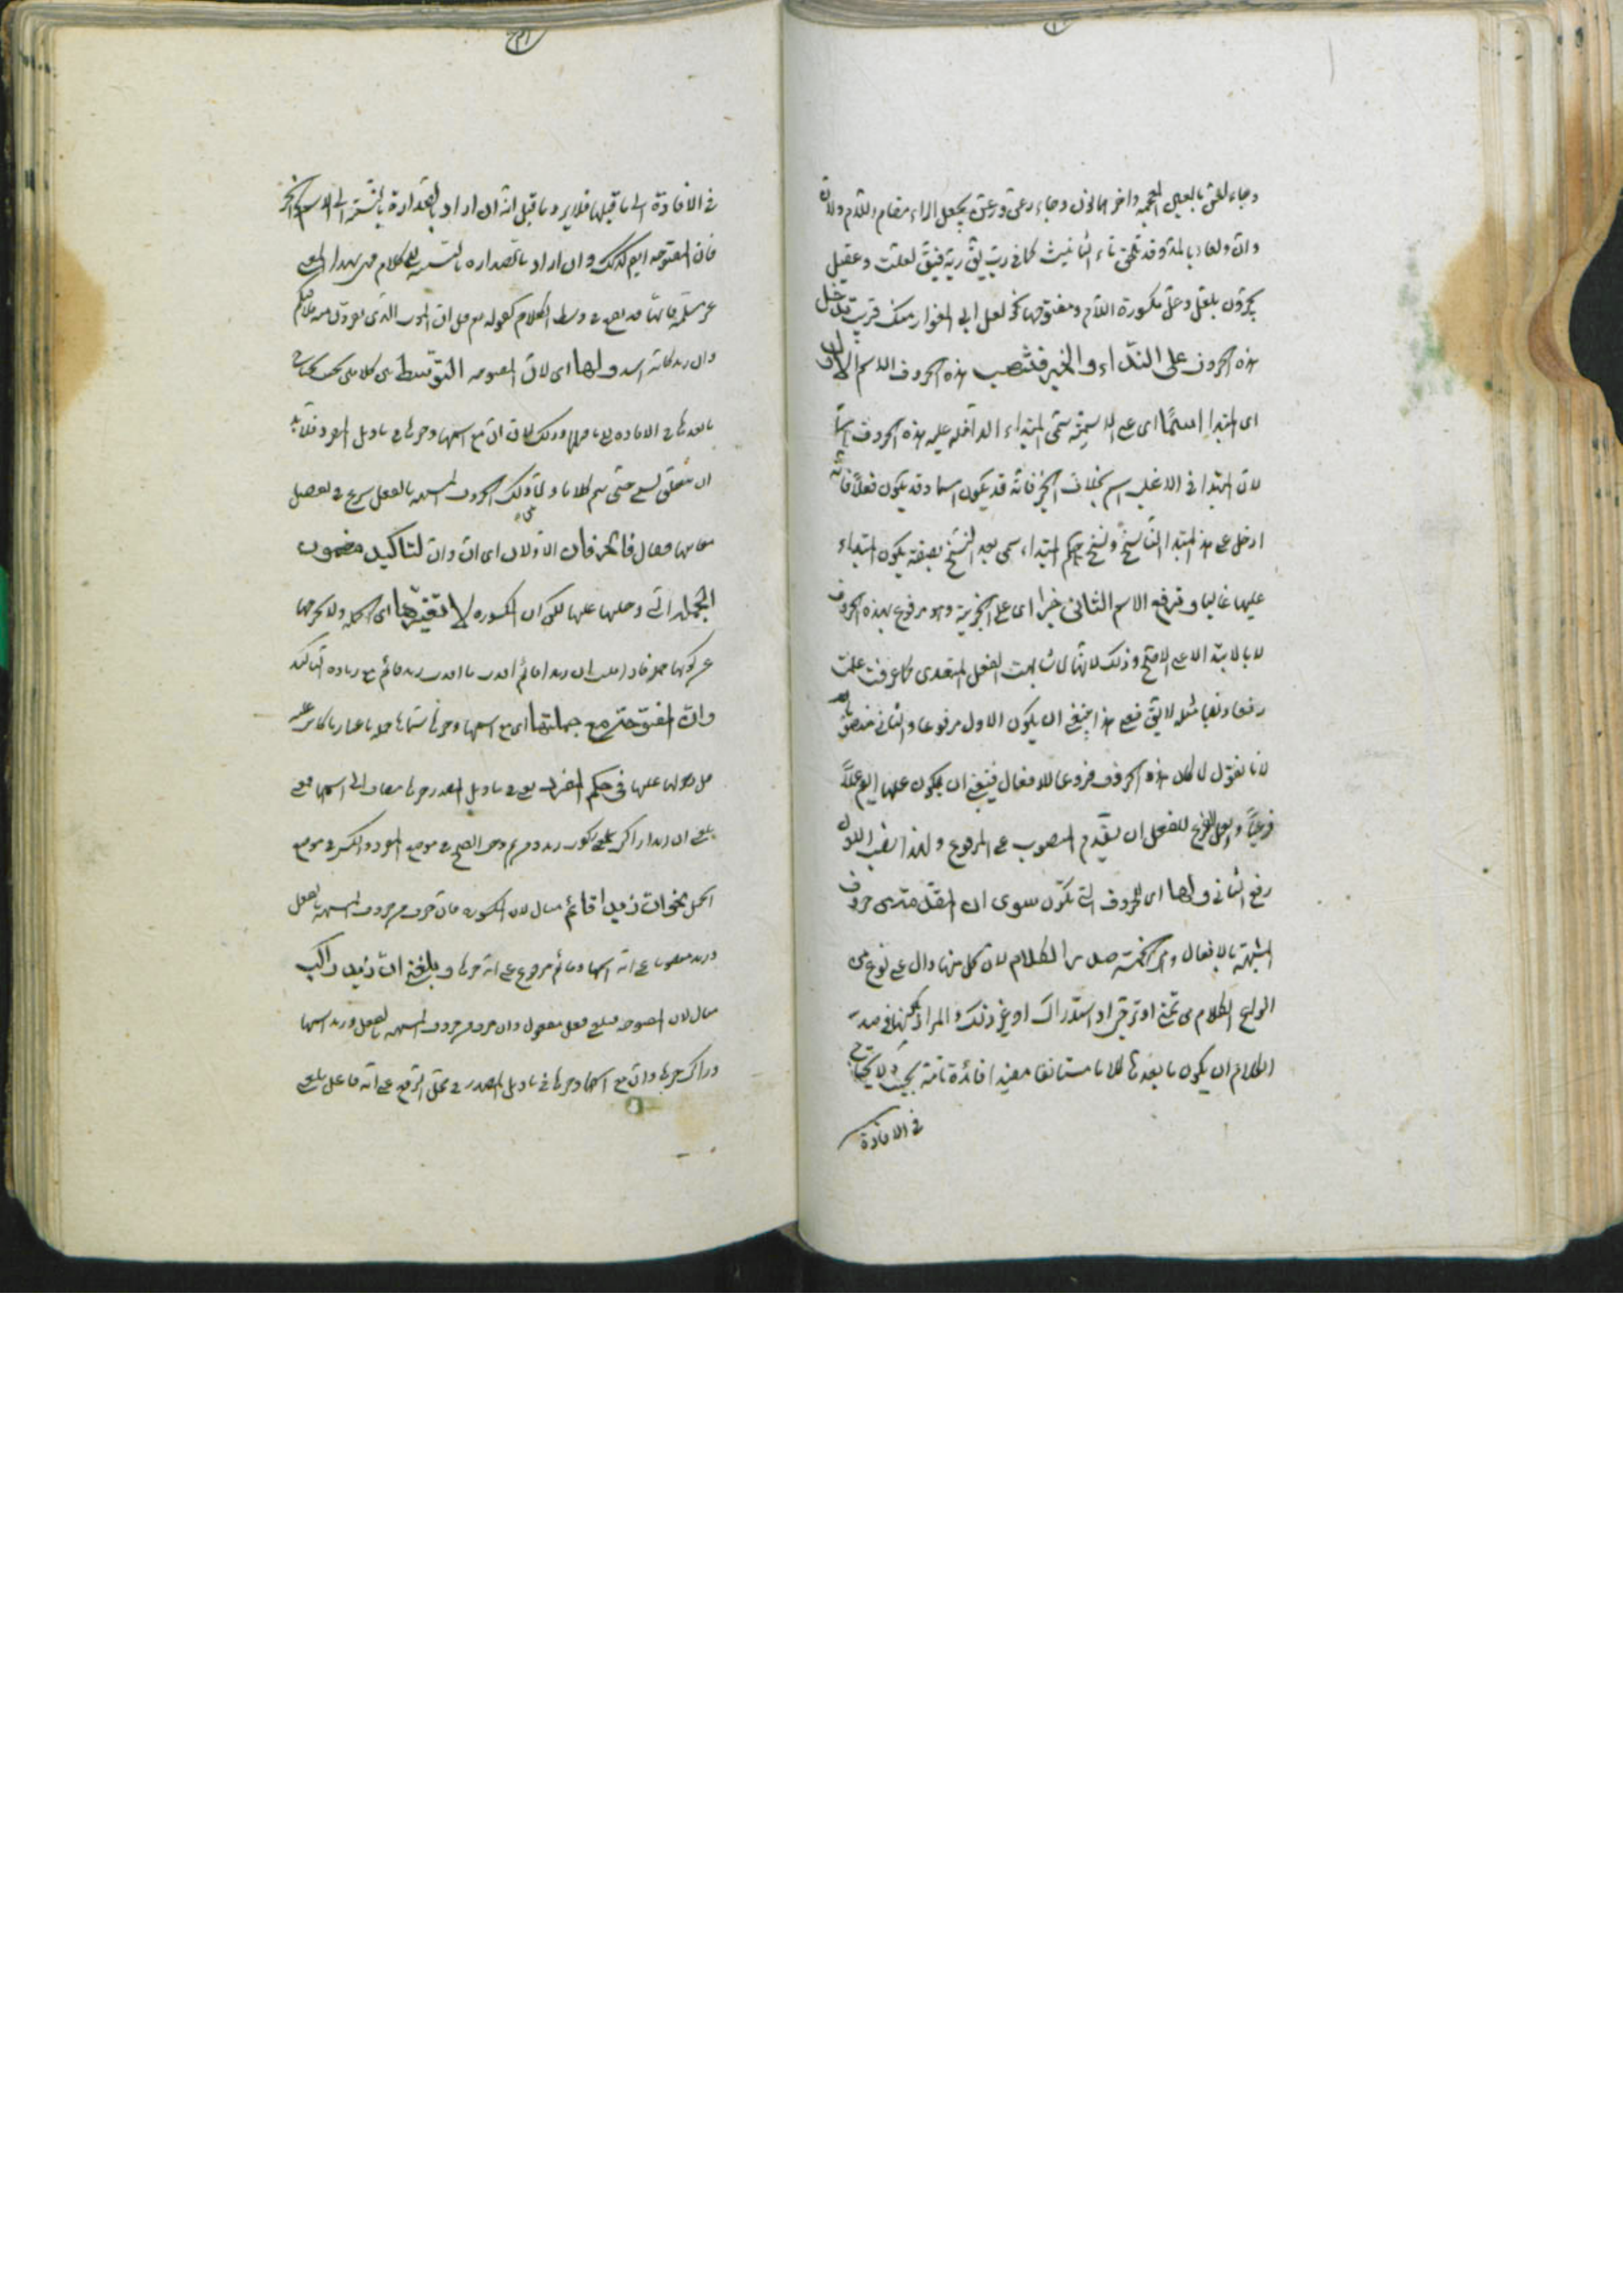 وجاء لغن بالغين المعجمة واخرها نون وجاء رعن ورغن بجعل الراء مقام اللام ولان
وان ولعا بالمد وقد تلحق تاء التأنيث كما في رب يق ربة فيق لعلت وعقيل
يجرون بلعل وعل مكسورة اللام ومفتوحها نحو لعل ابي المغوار منك قريب تدخل
هذه الحروف على المبتداء والخبر فتنصب هذه الحروف الاسم الاول
اى المبتدا اسما اى على الاسمية سمى المبتداء الداخلة عليه هذه الحروف اسما
لان المبتدا في الاغلب اسم بخلاف الخبر فانه قد يكون اسما وقد يكون فعلا فانه
ادخل على هذا المبتدا الناسخ ونسخ حكم المبتداء سمى بعد النسخ بصفة يكون المبتداء
عليها غالبا وترفع الاسم الثاني خبرا اى على الخبرية وهو مرفوع بهذه الحروف
لا بالابتداء على الاصح وذلك لانها لما شابهت الفعل المتعدى كما عرفت عملت
رفعا ونصبا مثله لا يق فعلى هذا ينبغي ان يكون الاول مرفوعا والثاني منصوبا
لانا نقول لما كان هذه الحروف فروعا للافعال فينبغي ان يكون عملها ايض عملا
فرعيا والعمل الفرعي للفعل ان يتقدم المنصوب على المرفوع ولهذا نصب الاول
رفع الثاني ولها اى للحروف التي تكون سوى ان المقدمة من حروف
المشبهة بالافعال وهي الخمسة صدر الكلام لان كل منها دال على نوع من
انواع الكلام من تمنى او ترجى او استدراك او غير ذلك والمراد بكونها في صدر
الكلام ان يكون ما بعدها كلاما مستانفا مفيدا فائدة تامة بحيث لا يحتاج
في الافادة
في الافادة الى ما قبلها فلا يرد ما قيل انه ان اراد بالصدارة بالنسبة الى الاسم والخبر
فان المفتوحة ايض كذلك وان اراد بالصدارة بالنسبة الى كلام
مسلمة فانها قد يقع في وسط الكلام كقوله تع قل ان الموت الذي تفرون منه فانه ملاقيكم
وان زيدا كانه اسد ولها اى لان المفتوحة التوسط بين كلامين بحيث يحتاج
ما بعدها في الافادة الى ما قبلها وذلك لان ان مع اسمها وخبرها في تاويل المفرد فلا بد
ان يتعلق بشئ حتى يتم كلاما ولما ذكر الحروف المشبهة بالفعل شرع في تفصيل
معانيها فقال فالحرفان الاولان اى ان وان لتاكيد مضمون
الجملة التي دخلتا عليها لكن ان المكسورة لا تغيرها اى الجملة ولا تخرجها
عن كونها جملة فاذا قلت ان زيدا قائم افدت ما افدت زيد قائم مع زيادة التاكيد
وان المفتوحة مع جملتها اى مع اسمها وخبرها سماها جملة باعتبار ما كانت عليه
قبل دخولها عليها في حكم المفرد يعنى في تاويل المصدر خبرها مضاف الى اسمها فمعنى
بلغني ان زيدا راكب بلغني ركوب زيد ومن ثم وجب الفتح في موضع المفرد والكسر في موضع
الجمل نحو ان زيدا قائم مثال لان المكسورة فان حرف من حروف المشبهة بالفعل
وزيد منصوب على انه اسمها وقائم مرفوع على انه خبرها وبلغني ان زيدا راكب
مثال لان المفتوحة فبلغني فعل مفعول وان حرف من حروف المشبهة بالفعل وزيد اسمها
وراكب خبرها وان مع اسمها وخبرها في تاويل المصدر في محل الرفع على انه فاعل بلغني